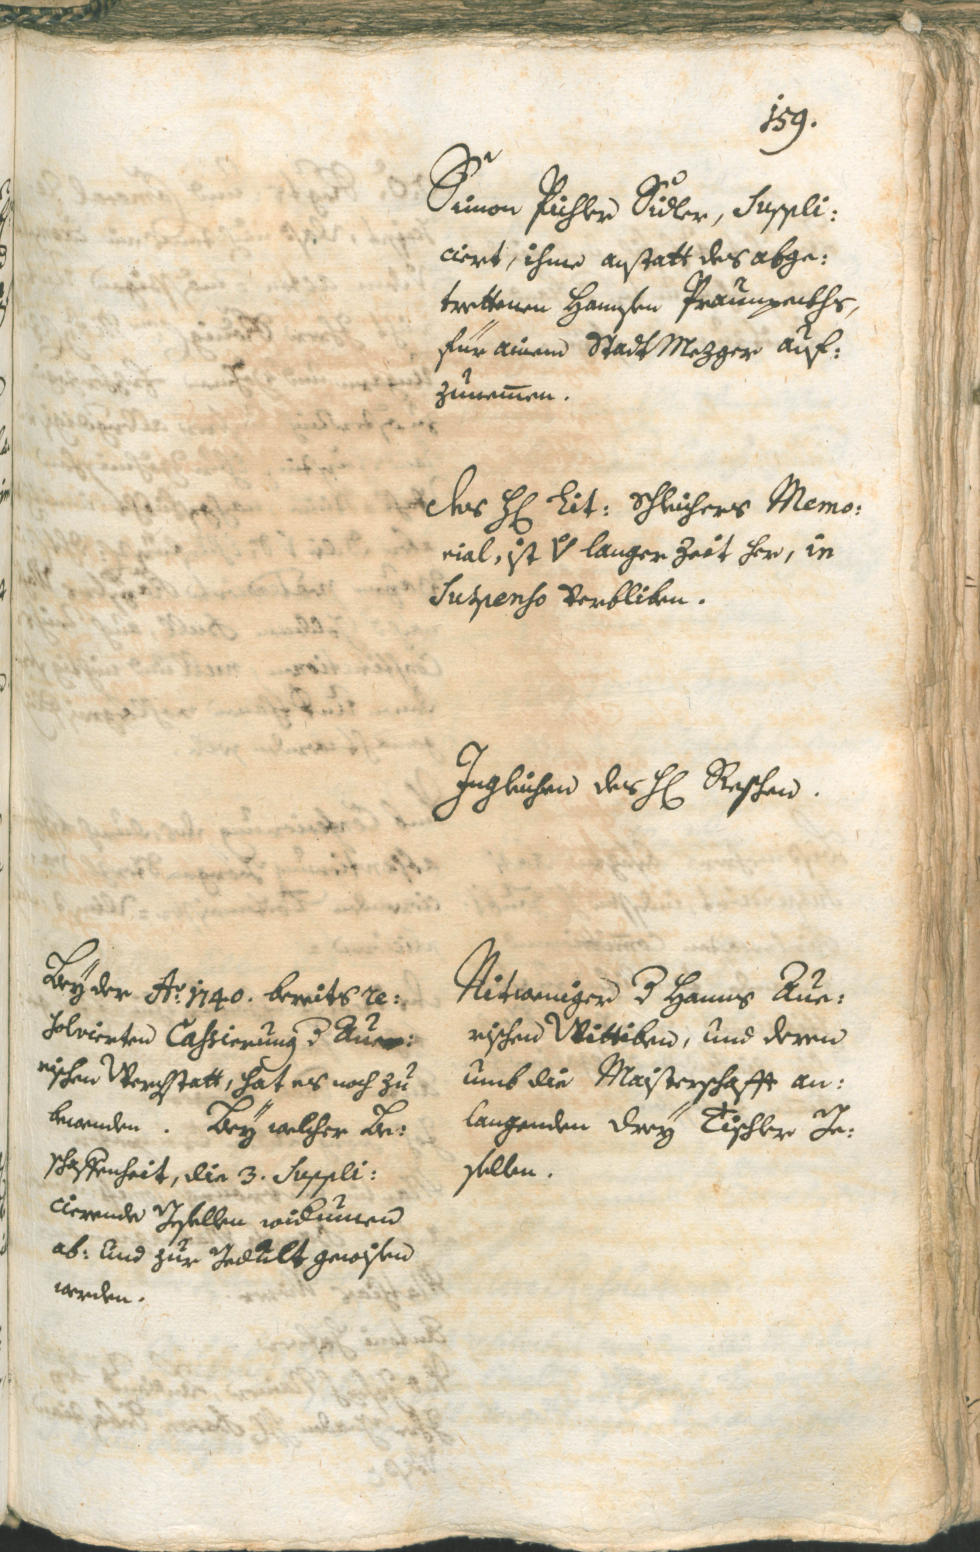 159.
Simon Pichler Sidler, Suppli:
ciert, ihme anstatt des abge:
trettenen Hannsen Praunpenths,
für ainem Stadt Mezger auf:
zunemen.
des H. Lit: Schleichers Memo:
rial, ist langer Zeit her, in
Suspenso verbliben.
Ingleichen des H. Reschen.
Nitweniger d Hanns Aue:
rischen Wittiben, und deren
umb die Maisterschafft an:
langenden drey Tischler Ge:
sellen.
Bey der Ao. 1740. bereits re:
solvierten Cassierung d Aue:
rischen Werchstatt, hat es noch zu
bewenden. Bey welcher Be:
schaffenheit, die 3. Suppli:
cierende Gesellen widerumen
ab: und zur Gedult gewisen
werden.